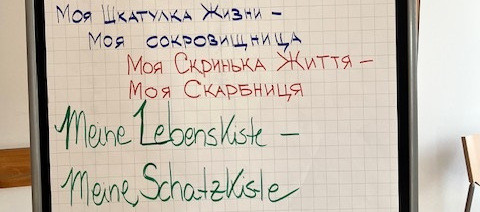 Моя Шкатулка Жизни –
Моя сокровищница
Моя Скринька Життя –
Моя Скарбниця
Meine Lebenskiste –
Meine Schatzkiste